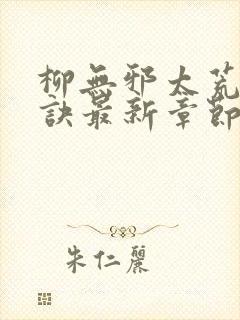 柳無邪太荒
訣最新章節
朱仁麗